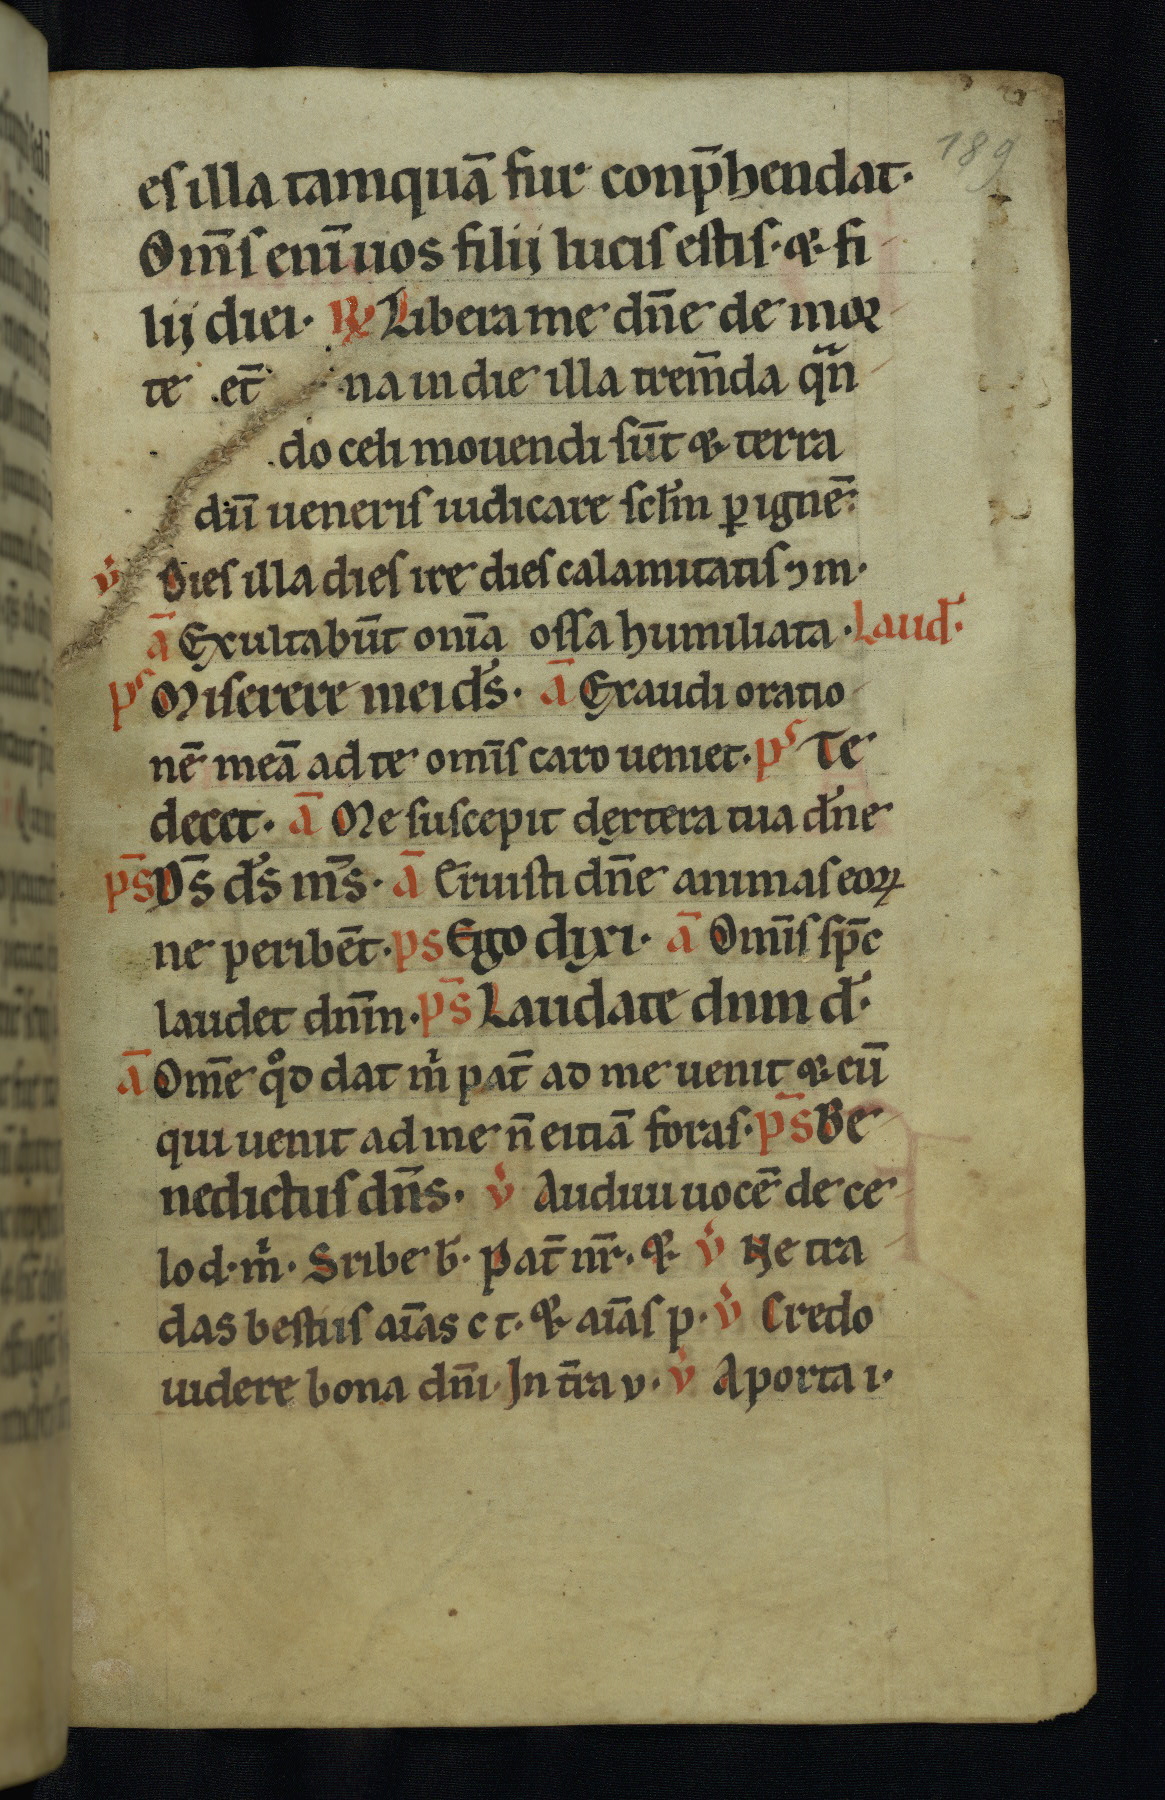 189
eſ illa tamquā fur conp̄hendat·
Om̄ſ enī uos filij luciſ eſtiſ· ⁊ fi
lij diei· R̷ Libera me dn̄e de mor
te et̄ na in die illa trem̄da qn̄
do celi mouendi ſūt ⁊ terra
dū ueneriſ iudicare ſcl̄m ꝑ ignē·
v̇ Dieſ illa dieſ ire dieſ calamitatiſ ⁊ m·
ā Exultabūt om̄a oſſa humiliata· Laud̄·
pſ Miſerere mei d̄s· ā Exaudi oratio
nē meā ad te om̄iſ caro ueniet· pſ Te
decet· ā Me ſuſcepit dextera tua dn̄e
p̄s D̄s d̄s m̄s· ā Eruiſti dn̄e animaſ eoꝝ
ne peribēt· ps Ego dixi· ā Om̄iſ ſp̄c
laudet dn̄m· p̄s Laudate dnm d̄·
ā Om̄e qͦd dat m̍ pat̄ ad me uenit ⁊ cū
qui uenit ad me n̄ eitiā foraſ· p̄s Be
nedictuſ dn̄s· v̇ Audiui uocē de ce
lo d· m̍· Sribe b̄· Pat̄ nr̄· ⁊ v̇ Ne tra
das beſtiiſ aīas c t· ⁊ aīaſ p· v̇ Credo
uidere bona dn̄i· In t̄ra v· v̇ A porta i·